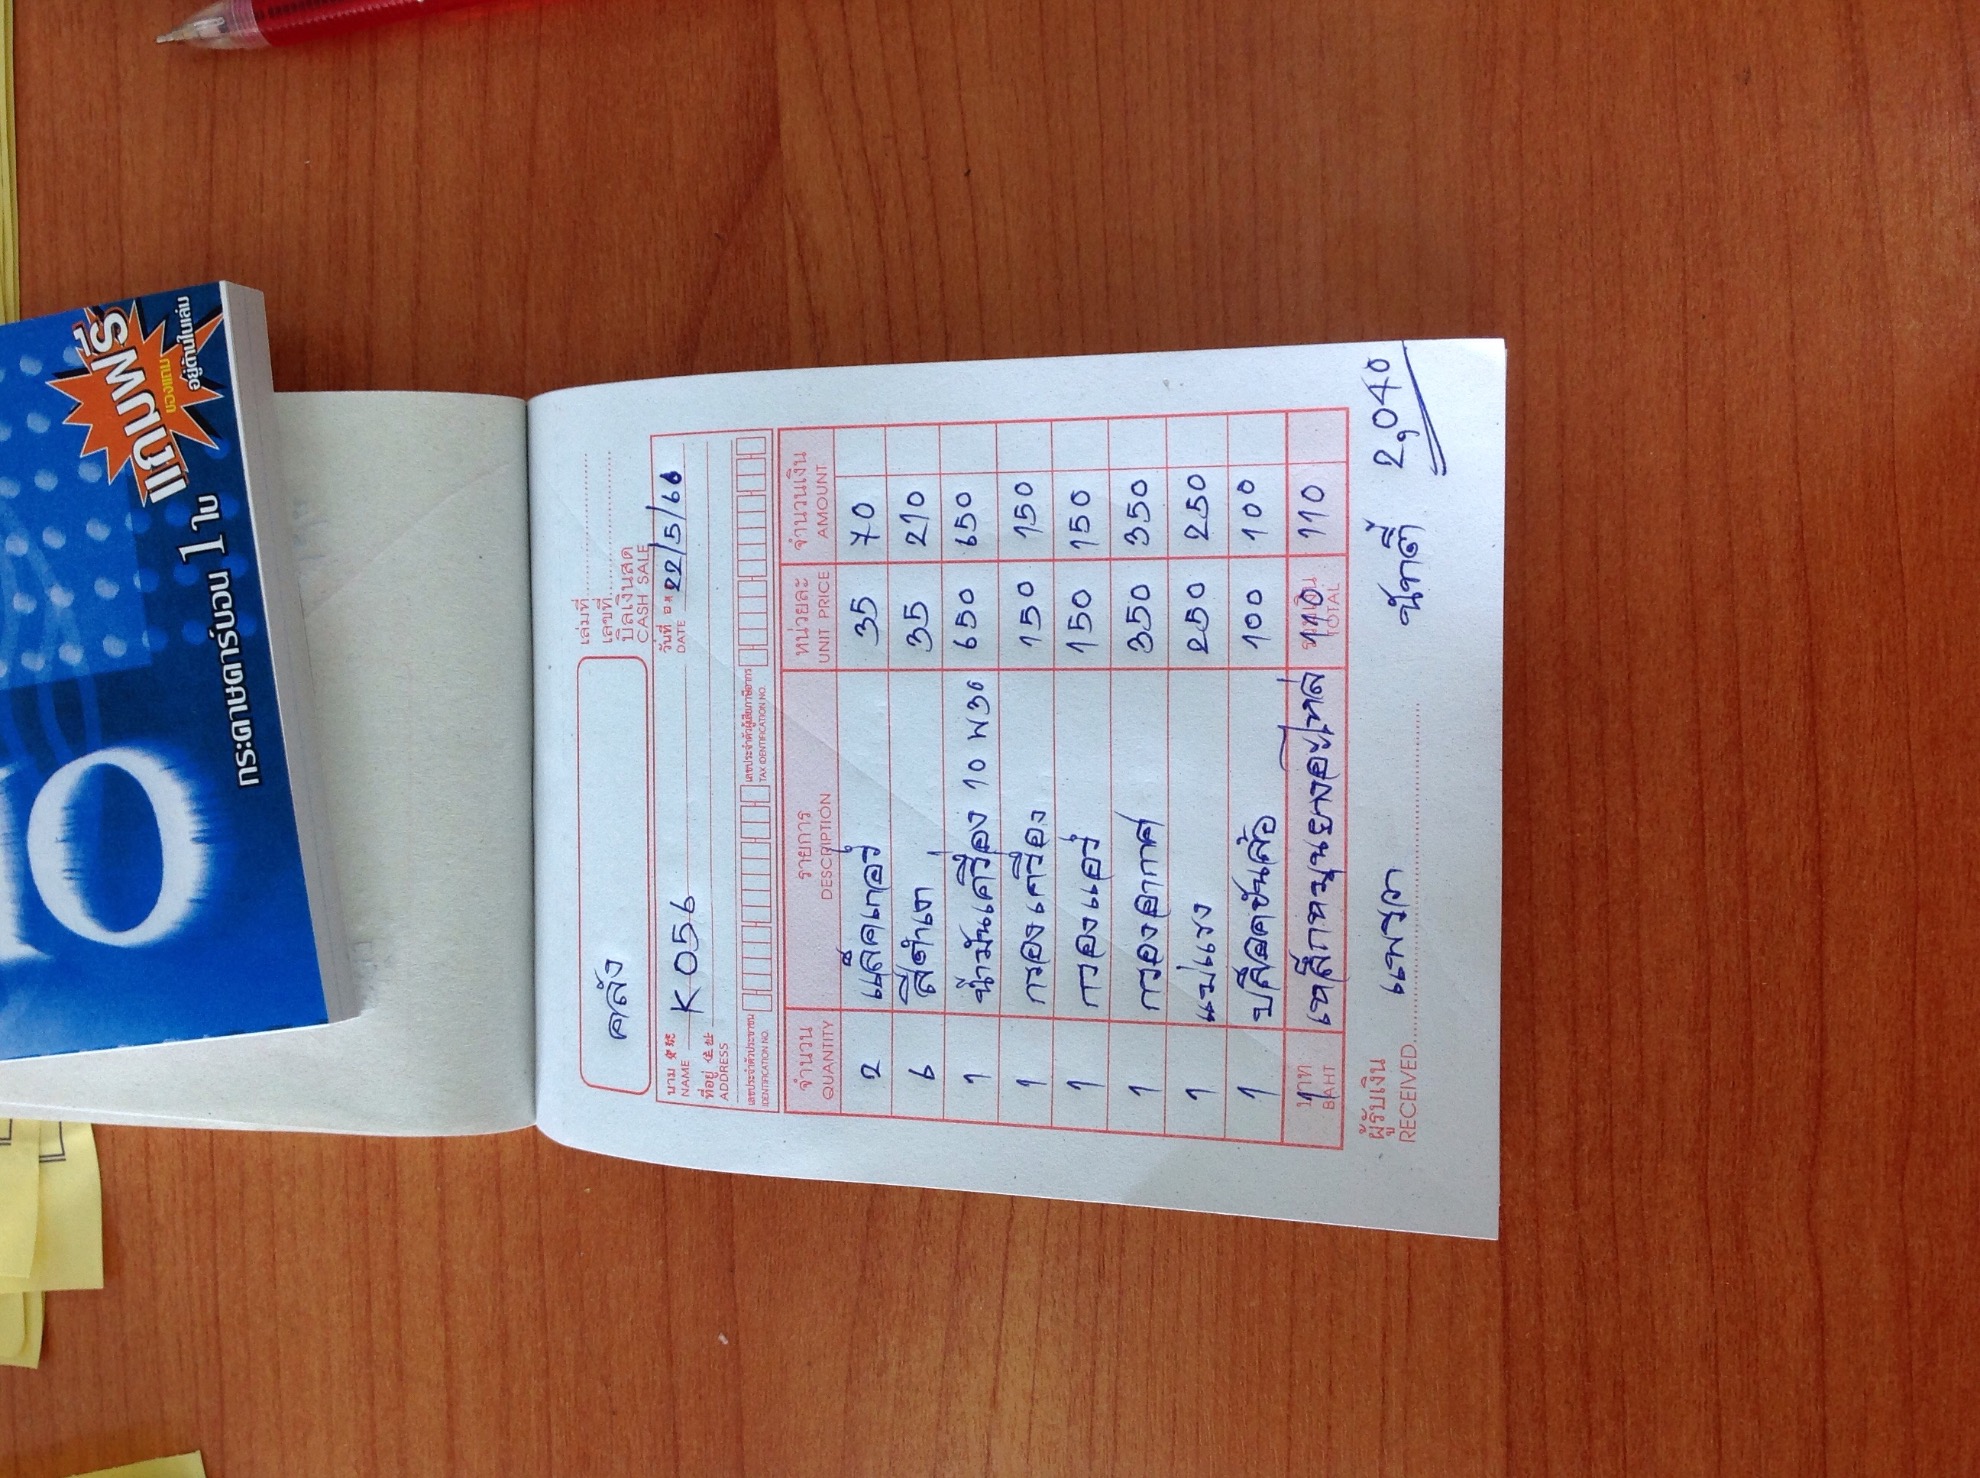 แถมฟรี
ของแถม
อยู่ด้านในเล่ม
กระดาษคาร์บอน 1 ใบ
คลัง
เล่มที่
เลขที่
บิลเงินสด
CASH SALE
นาม 寶號 K 056 วันที่ 22/5/66
NAME DATE
ที่อยู่ 住址
ADDRESS
เลขประจำตัวประชาชน เลขประจำตัวผู้เสียภาษีอากร
IDENTIFICATION NO. TAX IDENTIFICATION NO.
จำนวน รายการ หน่วยละ จำนวนเงิน
QUANTITY DESCRIPTION UNIT PRICE AMOUNT
2 แล็คเกอร์ 35 70
6 สีดำเงา 35 210
1 น้ำมันเครื่อง 10 W30 650 650
1 กรองเครื่อง 150 150
1 กรองแอร์ 150 150
1 กรองอากาศ 350 350
1 แปแรง 250 250
1 บล็อคขันล้อ 100 100
1 เหล็กหมุนยางอะไหล่ 110 110
บาท
BAHT TOTAL
ผู้รับเงิน
RECEIVED แพรวา นัทตี้ 2,040